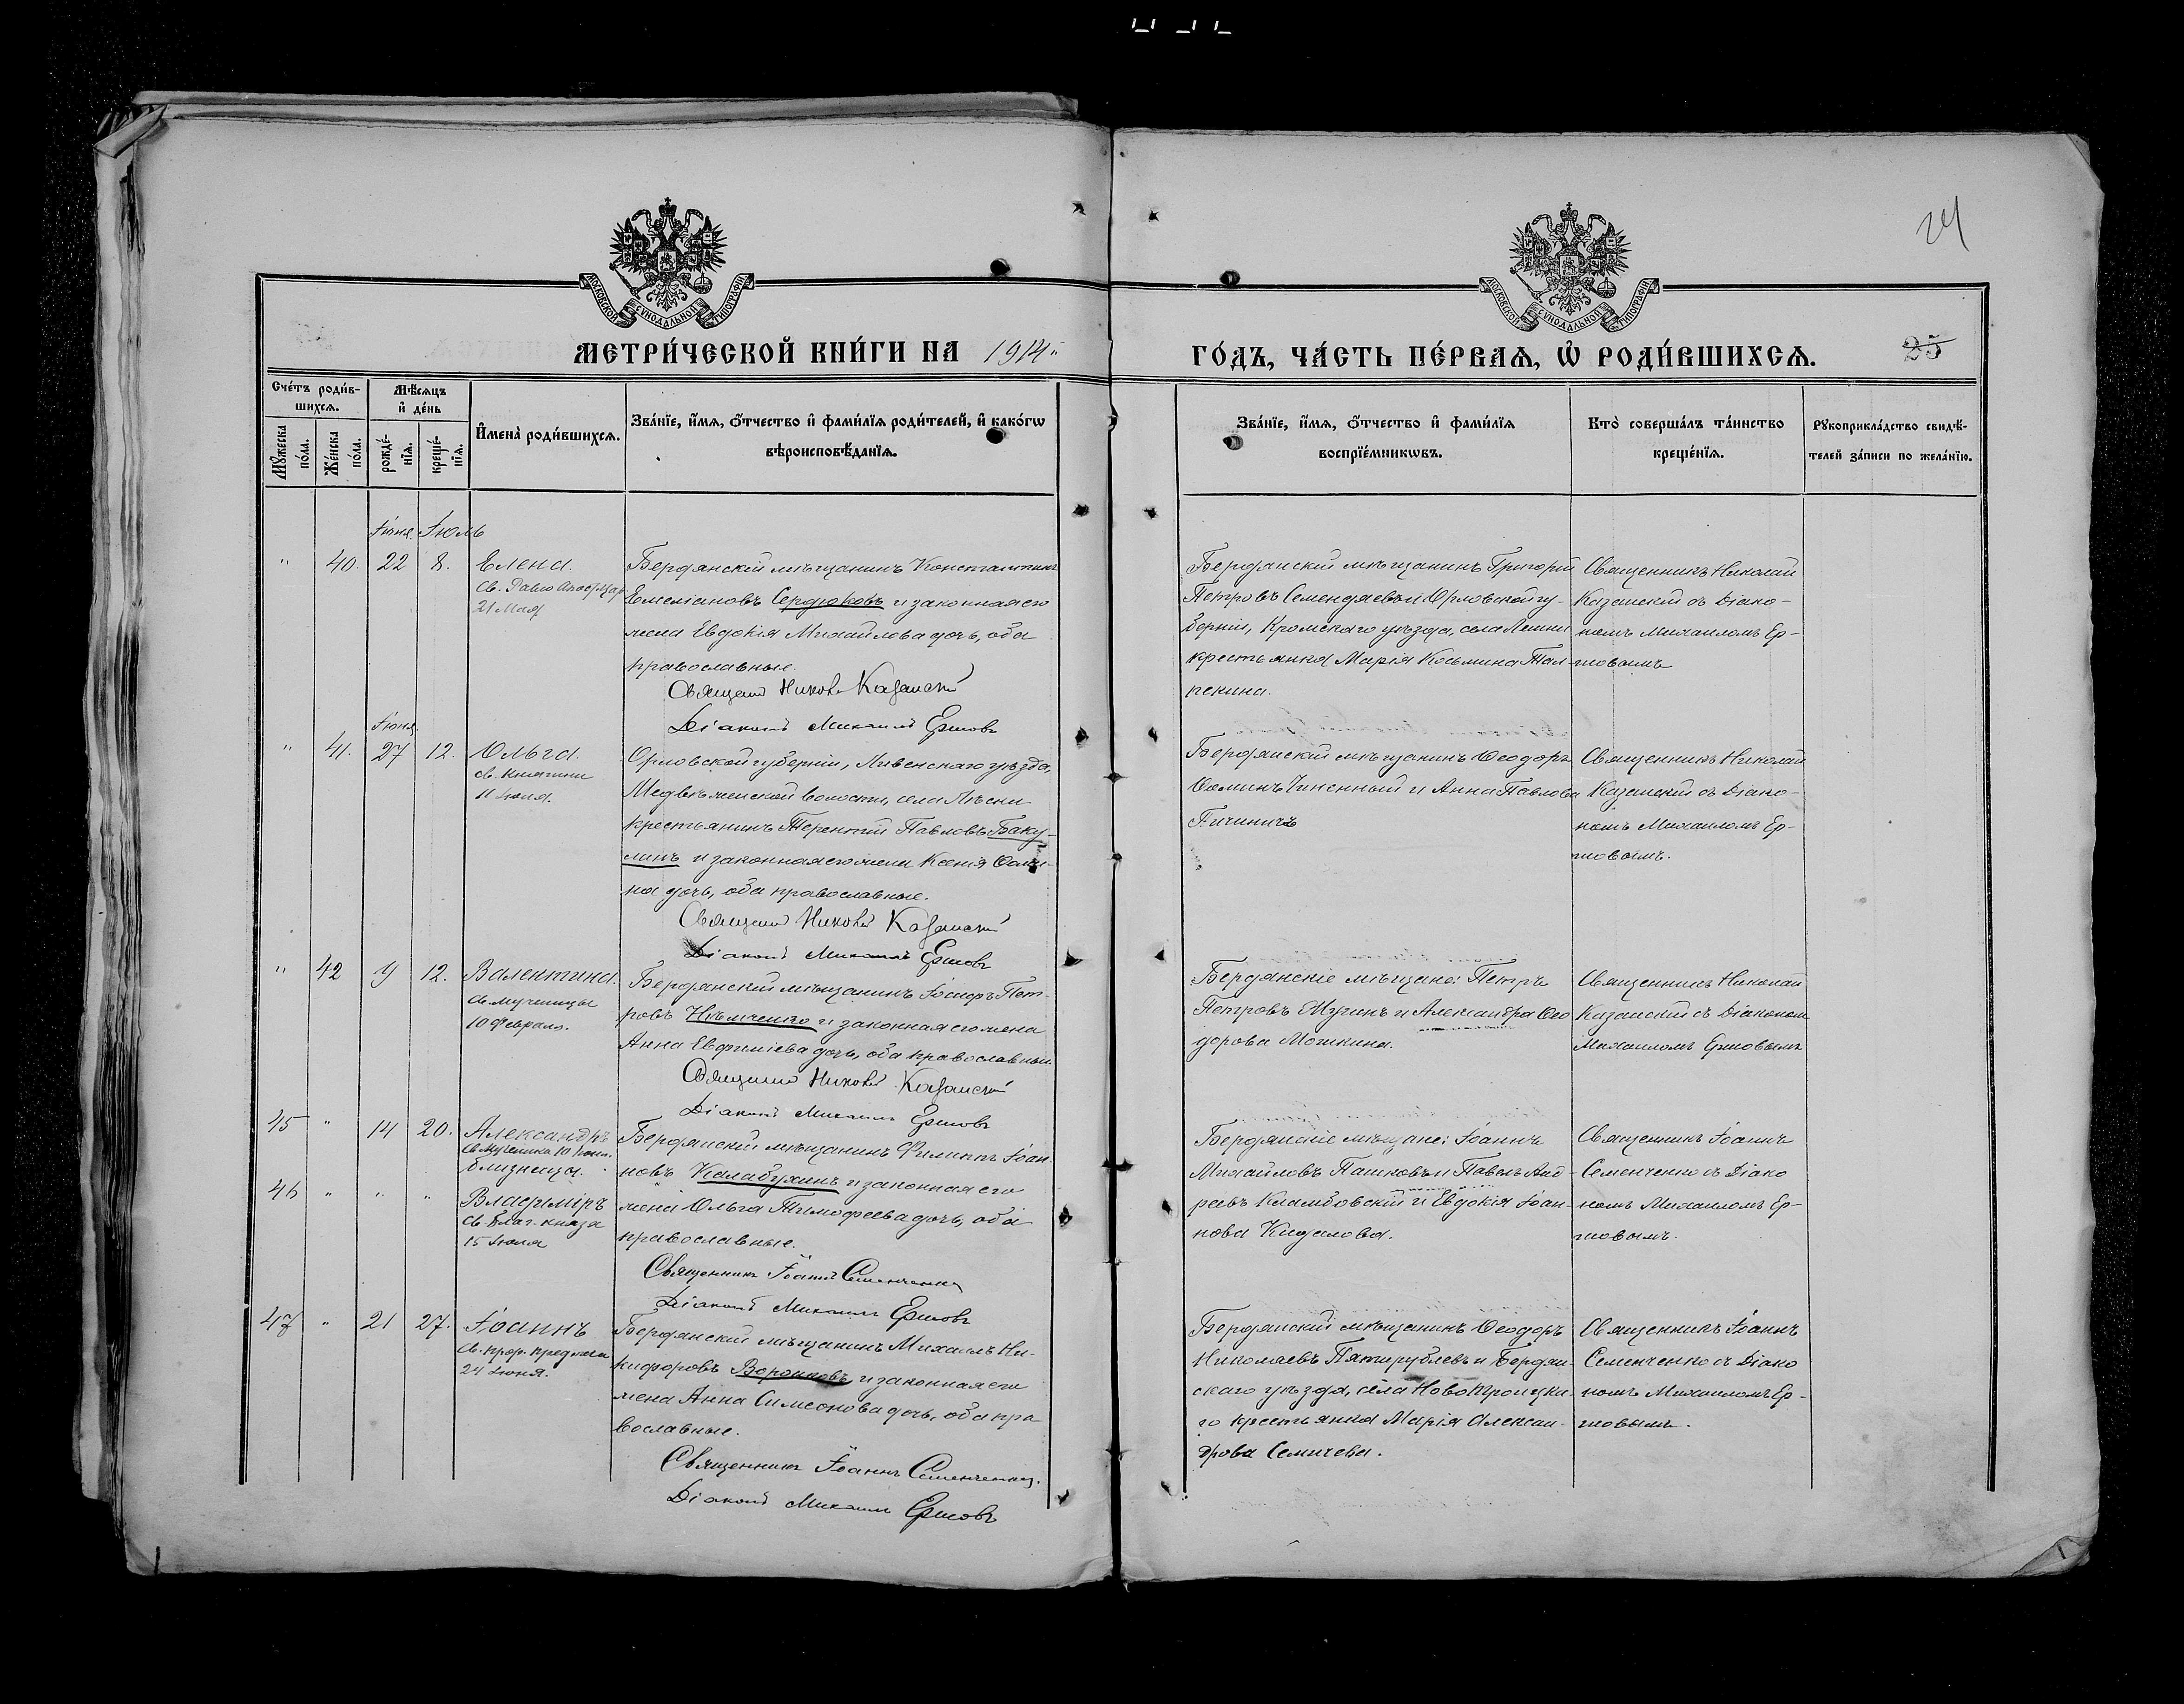 24
МОСКОВСКОЙ СѴНОДАЛЬНОЙ ТИПОГРАФІИ
МОСКОВСКОЙ СѴНОДАЛЬНОЙ ТИПОГРАФІИ
МЕТРИ́ЧЕСКОЙ КНИ́ГИ НА 1914
ГО́ДЪ, ЧА́СТЬ ПЕ́РВАѦ, Ѡ҆ РОДИ́ВШИХСѦ.
25
Сче́тъ роди́в-
шихсѧ.
Мꙋ́жеска
по́ла.
Же́нска
по́ла.
Мѣ́сѧцъ
и҆ де́нь
рожде́-
нїѧ.
креще́-
нїѧ.
И҆мена̀ роди́вшихсѧ.
Зва́нїе, и҆́мѧ, ѻ҆́тчество и҆ фами́лїѧ роди́телей, и҆ како́гѡ
вѣроисповѣ́данїѧ.
Зва́нїе, и҆́мѧ, ѻ҆́тчество и҆ фами́лїѧ
воспрїе́мникѡвъ.
Кто̀ соверша́лъ та́инство
креще́нїѧ.
Рꙋкоприкла́дство свидѣ́-
телей за́писи по жела́нїю.
Іюня Іюль
" 40. 22 8. Елена.
21 Мая
Бердянскій мѣщанинъ Константинъ
Емеліановъ Сердюковъ и законная его
жена Евдокія Михайлова дочь, оба
православные.
Николай Казанскій
Діаконъ Михаилъ Ершовъ
Бердянскій мѣщанинъ Григорій
Петровъ Семендяевъ и Орловской гу-
берніи, Кромскаго уѣзда, села
крестьянка Марія Косьмина Тал-
пекина.
Священникъ Николай
Казанскій съ Діако-
номъ Михаиломъ Ер-
шовымъ
Іюня
" 41. 27 12. Ольга.
св. Княгини
11 Іюля.
Орловской губерніи, Ливенскаго уѣзда,
волости, села
крестьянинъ Терентій Павловъ Баку-
линъ и законная его жена Ксенія Ѳоми-
на дочь, оба православные.
Николай Казанскій
Діаконъ Михаилъ Ершовъ
Бердянскій мѣщанинъ Ѳеодоръ
Ѳоминъ и Анна Павлова
Священникъ Николай
Казанскій съ Діако-
номъ Михаиломъ Ер-
шовымъ.
" 42 9 12. Валентина.
св. мученицы
10 Февраля.
Бердянскій мѣщанинъ Іосифъ Пет-
ровъ Нѣмченко и законная его жена
Анна Евфиміева дочь, оба православные.
Николай Казанскій
Діаконъ Михаилъ Ершовъ
Бердянскіе мѣщане: Петръ
Петровъ Мугинъ и Александра Ѳео
дорова Мошкина.
Священникъ Николай
Казанскій съ Діакономъ
Михаиломъ Ершовымъ
45 " 14 20. Александръ
св. мученика 10 Іюля.
близнецы.
46 " " " Владиміръ
св. Благ. князя
15 Іюля
Бердянскій мѣщанинъ Филиппъ Іоан
новъ Калабухинъ и законная его
жена Ольга Тимофеева дочь, оба
православные.
Священникъ Іоаннъ Семенченко
Діаконъ Михаилъ Ершовъ
Бердянскіе мѣщане: Іоаннъ
Михайловъ Пашковъ и Павелъ Анд-
реевъ и Евдокія Іоан-
нова Кидалова.
Священникъ Іоаннъ
Семенченко съ Діако
номъ Михаиломъ Ер-
шовымъ.
47 " 21 27. Іоаннъ
Св. прор. предтечи
24 Іюня.
Бердянскій мѣщанинъ Михаилъ Ни-
кифоровъ Воронковъ и законная его
жена Анна Симеонова дочь, оба пра
вославные.
Священникъ Іоаннъ Семенченко.
Діаконъ Михаилъ Ершовъ
Бердянскій мѣщанинъ Ѳеодоръ
Николаевъ Пятирублевъ и Бердян-
скаго уѣзда, села Новотроицка-
го крестьянка Марія Алексан-
дрова Семичева.
Священникъ Іоаннъ
Семенченко съ Діако
номъ Михаиломъ Ер-
шовымъ.